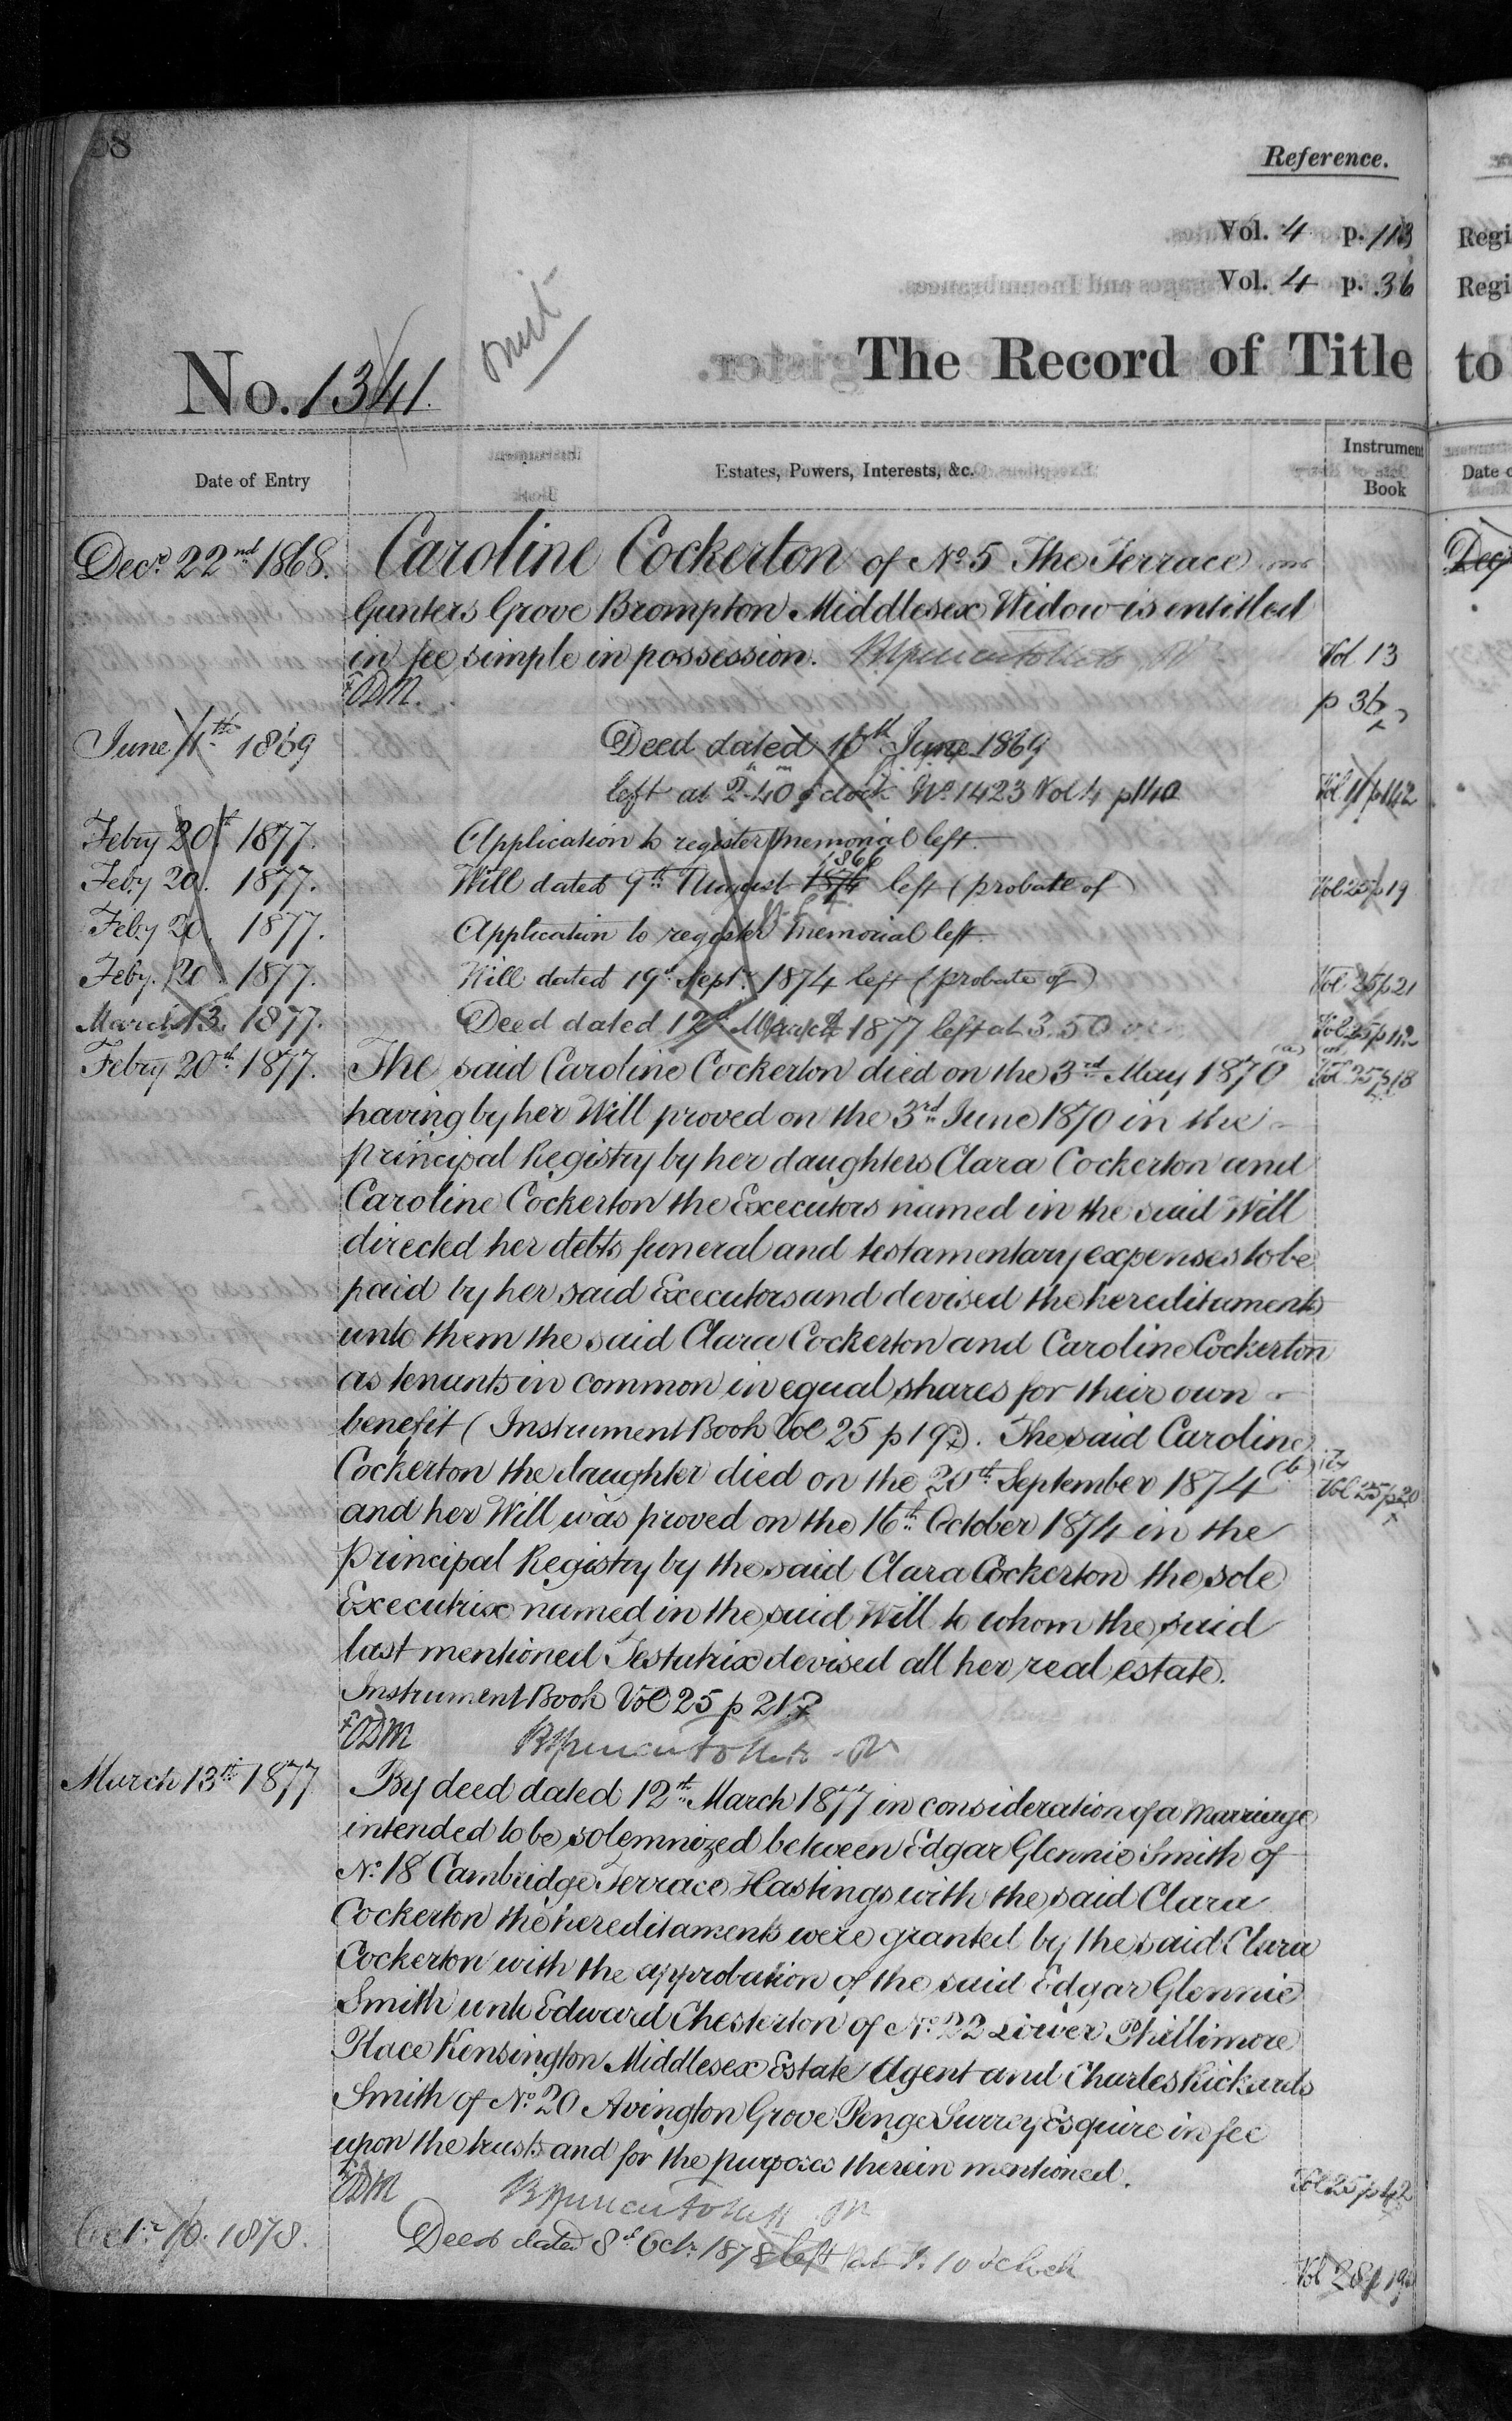 Reference.
Vol. 4 p. 113
Vol. 4 p. 36
Regi
Regi
omit
No. 1341.
The Record of Title
to
Date of Entry
Estates, Powers, Interests, &c.
Instrument
Book
Date o
Decr. 22nd 1868. Caroline Cockerton of No 5 The Terrace
Gunters Grove Brompton Middlesex Widow is entitled
in fee simple in possession. Vol 13
ODM. p 36
June 11th 1869 Deed dated 10th June 1869
left at 2.40 o'clock No. 1423 Vol 4 p 140 Vol 11 p 142
Febry 20th 1877. Application to register memorial left.
1866
Feby 20. 1877. Will dated 9th August 1874 left (probate of) Vol 25 p 19
Feby 20 1877. Application to register memorial left.
Feby. 20 1877. Will dated 19d Sept. 1874 left (probate of) Vol 25 p 21
March 13. 1877. Deed dated 12d March 1877 left at 3.50 Vol 25 p
Febry 20th 1877. The said Caroline Cockerton died on the 3rd May 1870 (a) Vol 25 p 18
having by her Will proved on the 3rd June 1870 in the
principal Registry by her daughters Clara Cockerton and
Caroline Cockerton the Executors named in the said Will
directed her debts funeral and testamentary expenses to be
paid by her said Executors and devised the hereditaments
unto them the said Clara Cockerton and Caroline Cockerton
as tenants in common in equal shares for their own
benefit (Instrument Book Vol 25 p 19). The said Caroline
Cockerton the daughter died on the 20th September 1874 (b) Vol 25 p 20
and her Will was proved on the 16th October 1874 in the
principal Registry by the said Clara Cockerton the sole
Executrix named in the said Will to whom the said
last mentioned Testatrix devised all her real estate.
Instrument Book Vol 25 p 21
ODM
March 13th 1877 By deed dated 12th March 1877 in consideration of a marriage
intended to be solemnized between Edgar Glennie Smith of
No. 18 Cambridge Terrace Hastings with the said Clara
Cockerton the hereditaments were granted by the said Clara
Cockerton with the approbation of the said Edgar Glennie
Smith unto Edward Chesterton of No. 22 Lower Phillimore
Place Kensington Middlesex Estate Agent and Charles Rickards
Smith of No. 20 Avington Grove Penge Surrey Esquire in fee
upon the trusts and for the purposes therein mentioned.
ODM Vol 25 p 42
Octr. 10. 1878. Deed dated 8d Octr. 1878 left at
Vol 28 p